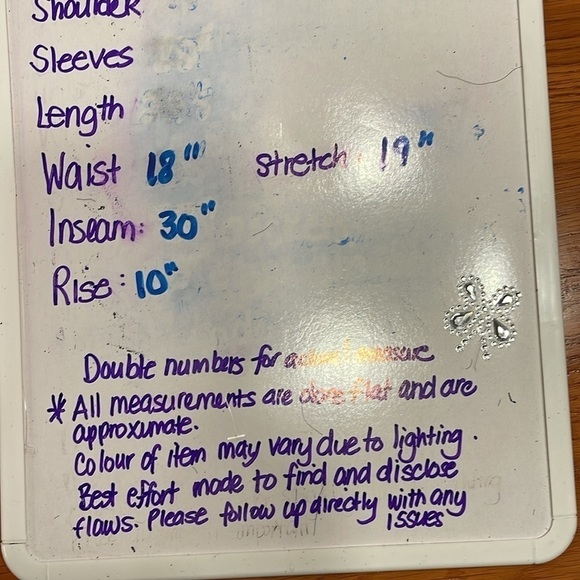 Shoulder
Sleeves
Length
Waist 18" stretch: 19"
Inseam: 30"
Rise: 10"
Double numbers for actual measure
* All measurements are done flat and are
approximate.
Colour of item may vary due to lighting.
Best effort made to find and disclose
flaws. Please follow up directly with any
issues